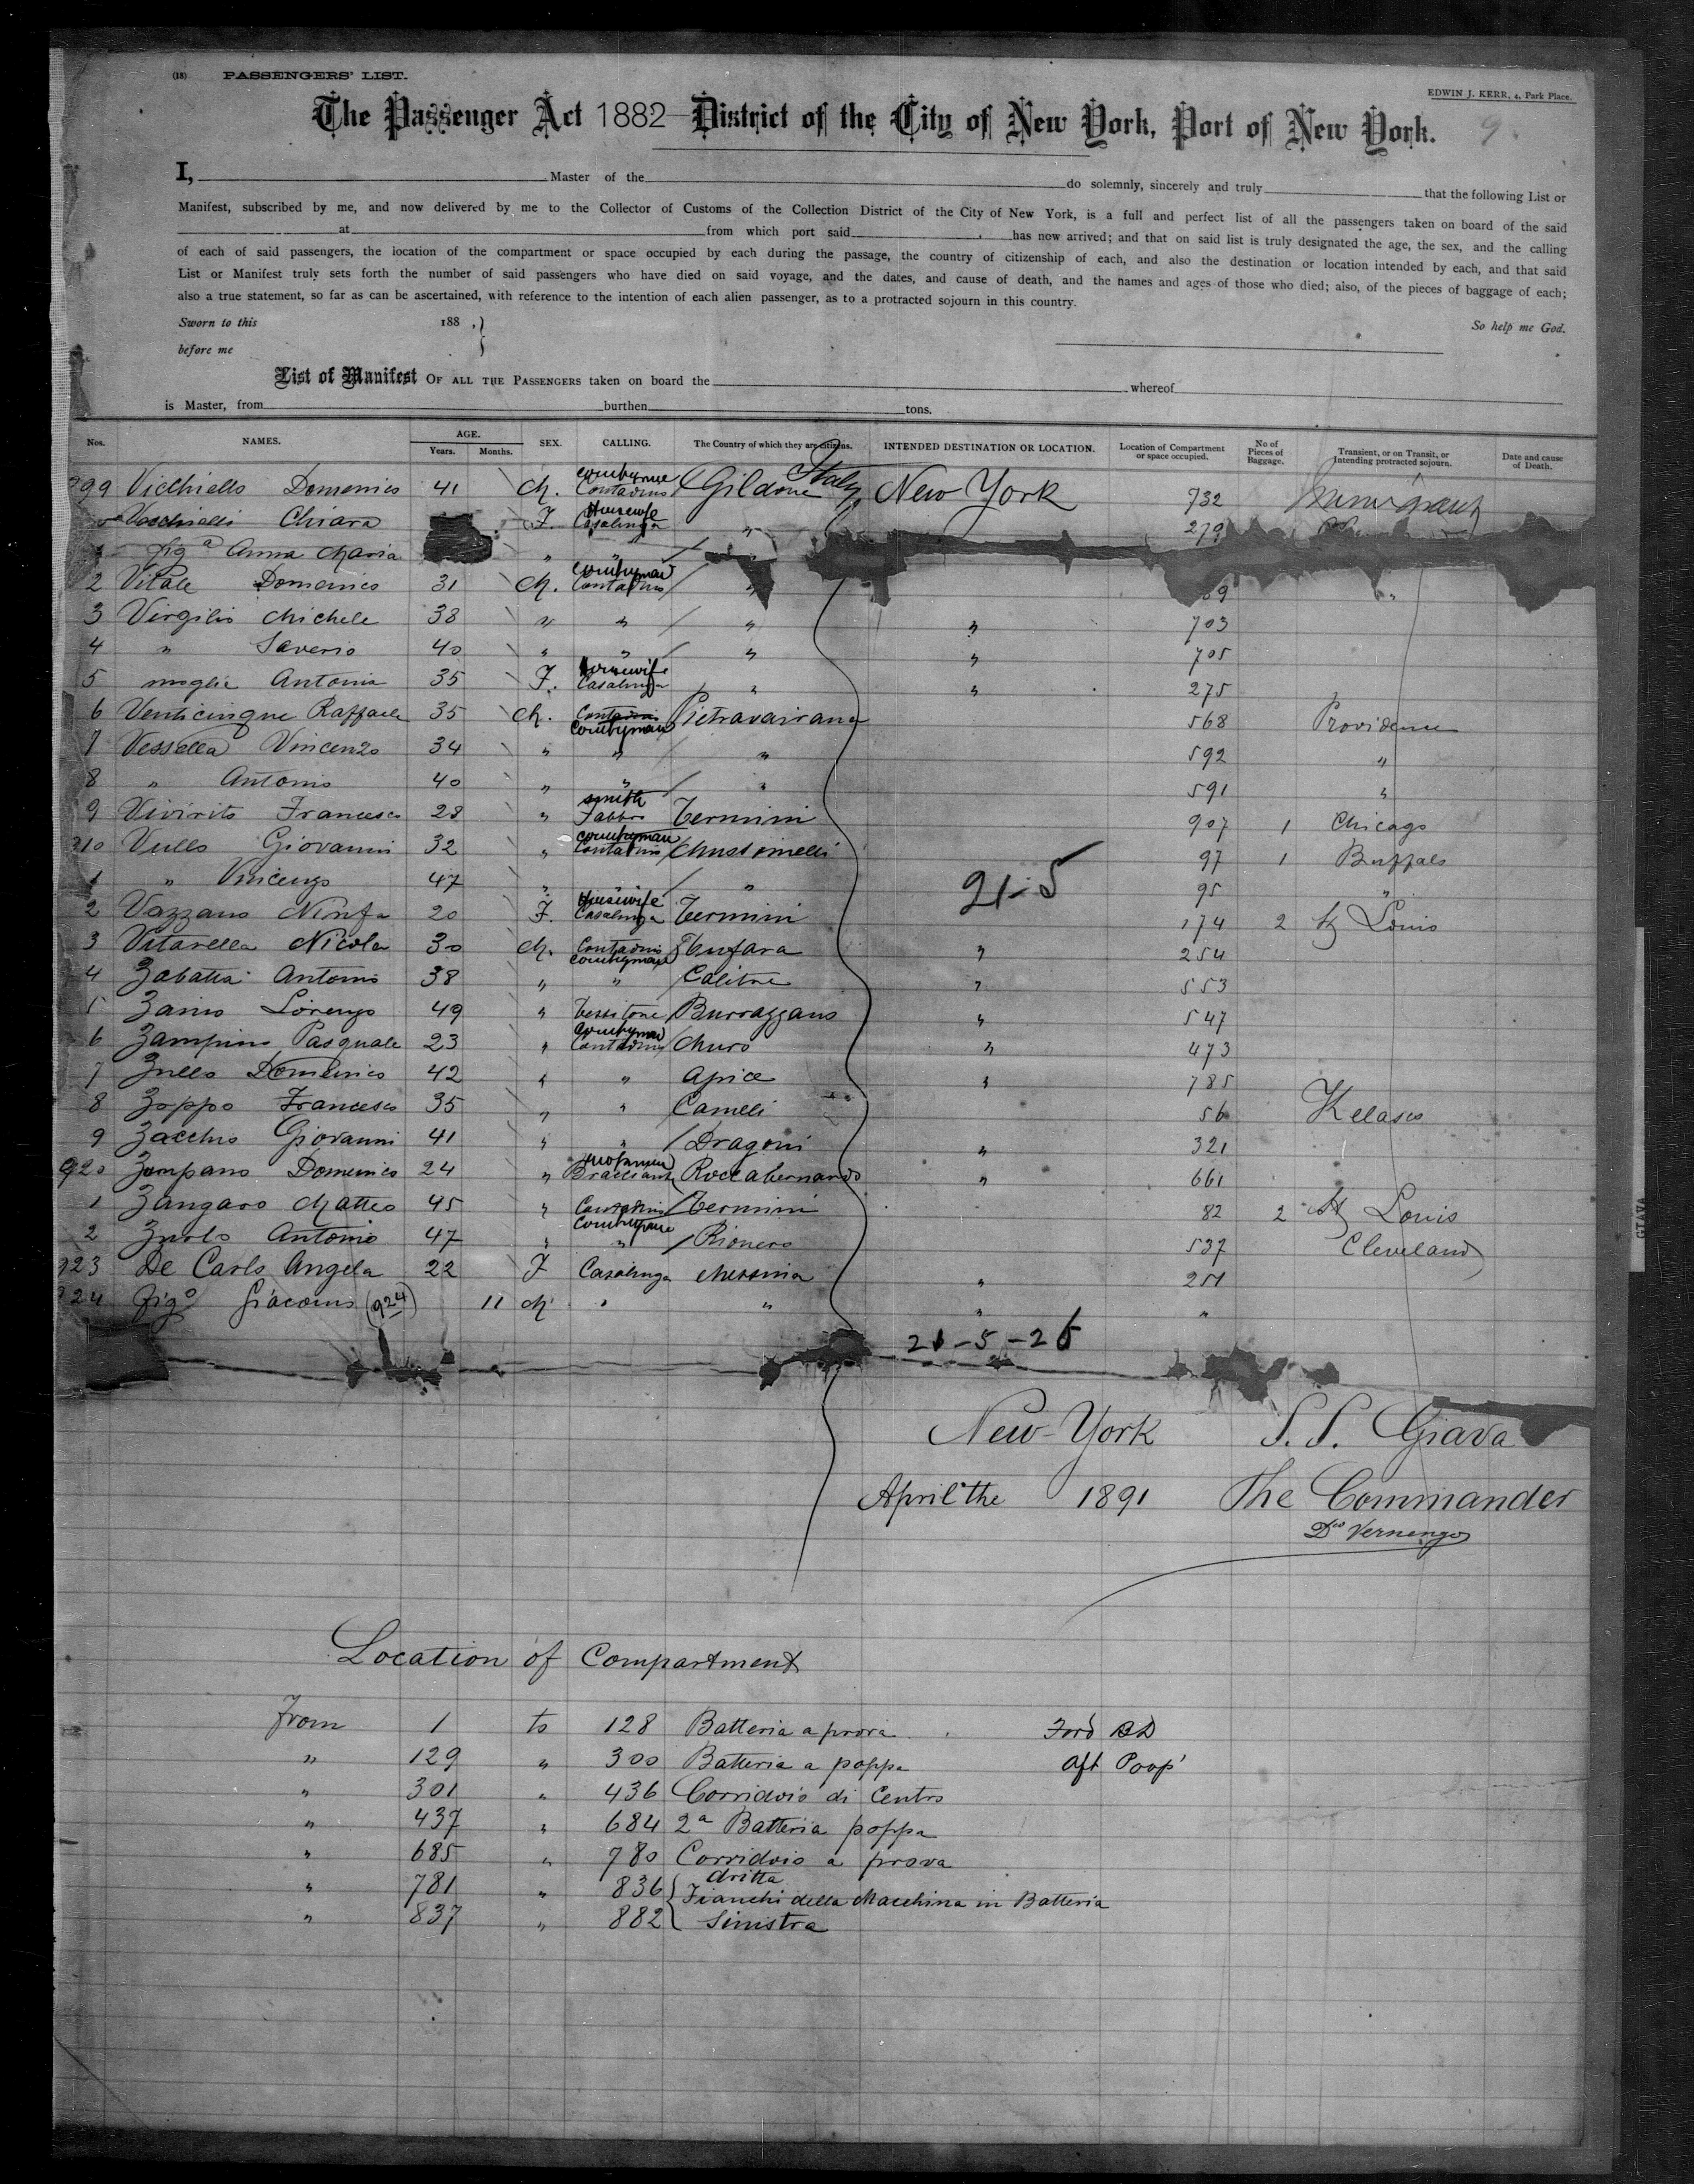 (18) PASSENGERS' LIST.
EDWIN J. KERR, 4, Park Place.
The Passenger Act 1882 District of the City of New York, Port of New York. 9
I, Master of the do solemnly, sincerely and truly that the following List or
Manifest, subscribed by me, and now delivered by me to the Collector of Customs of the Collection District of the City of New York, is a full and perfect list of all the passengers taken on board of the said
at from which port said has now arrived; and that on said list is truly designated the age, the sex, and the calling
of each of said passengers, the location of the compartment or space occupied by each during the passage, the country of citizenship of each, and also the destination or location intended by each, and that said
List or Manifest truly sets forth the number of said passengers who have died on said voyage, and the dates, and cause of death, and the names and ages of those who died; also, of the pieces of baggage of each;
also a true statement, so far as can be ascertained, with reference to the intention of each alien passenger, as to a protracted sojourn in this country.
Sworn to this 188 , } So help me God.
before me
List of Manifest OF ALL THE PASSENGERS taken on board the whereof
is Master, from burthen tons.
Nos. NAMES. AGE. Years. Months. SEX. CALLING. The Country of which they are citizens. INTENDED DESTINATION OR LOCATION. Location of Compartment or space occupied. No of Pieces of Baggage. Transient, or on Transit, or Intending protracted sojourn. Date and cause of Death.
99 Vicchiello Domenico 41 M. countryman Contadino Gildone Italy New York 732
Chiara F. Housewife Casalinga " 279
figa Anna Maria " " "
2 Vitale Domenico 31 M. countryman Contadino " "
3 Virgilio Michele 38 " " " " 703
4 " Saverio 40 " " " " 705
5 moglie Antonia 35 F. housewife Casalinga " " 275
6 Venticinque Raffaele 35 M. Contadino countryman Pietravairano 568 Providence
7 Vessella Vincenzo 34 " " " 592 "
8 " Antonio 40 " " " 591 "
9 Vivirito Francesco 28 " smith Fabbro Termini 907 1 Chicago
910 Vullo Giovanni 32 " countryman Contadino 97 1 Buffalo
1 " Vincenzo 47 " " " 21-5 95 "
2 Vazzano Ninfa 20 F. Housewife Casalinga Termini 174 2 St Louis
3 Vitarella Nicola 30 M. Contadino countryman Tufara " 254
4 Zabatta Antonio 38 " " Calitri " 553
5 Zaino Lorenzo 49 " Tessitore " 547
6 Zampino Pasquale 23 " countryman Contadino Muro " 473
7 Zullo Domenico 42 " " Apice " 785
8 Zoppo Francesco 35 " " Cameli 56
9 Zacchio Giovanni 41 " " Dragoni " 321
920 Zampano Domenico 24 " Roccabernardo " 661
1 Zangaro Matteo 45 " Contadino countryman Termini 82 2 St Louis
2 Zurlo Antonio 47 " " Rionero 537 Cleveland
923 De Carlo Angela 22 F Casalinga Messina " 251
924 figo Giacomo (924) 11 M " " " "
21-5-26
New York S. S. Giava
April the 1891 The Commander
Dco Vernengo
Location of Compartment
from 1 to 128 Batteria a prora Ford BD
" 129 " 300 Batteria a poppa aft Poop
" 301 " 436 Corridoio di Centro
" 437 " 684 2a Batteria poppa
" 685 " 780 Corridoio a prova
" 781 " 836 { dritta
Fianchi della Macchina in Batteria
" 837 " 882 { Sinistra
GIAVA